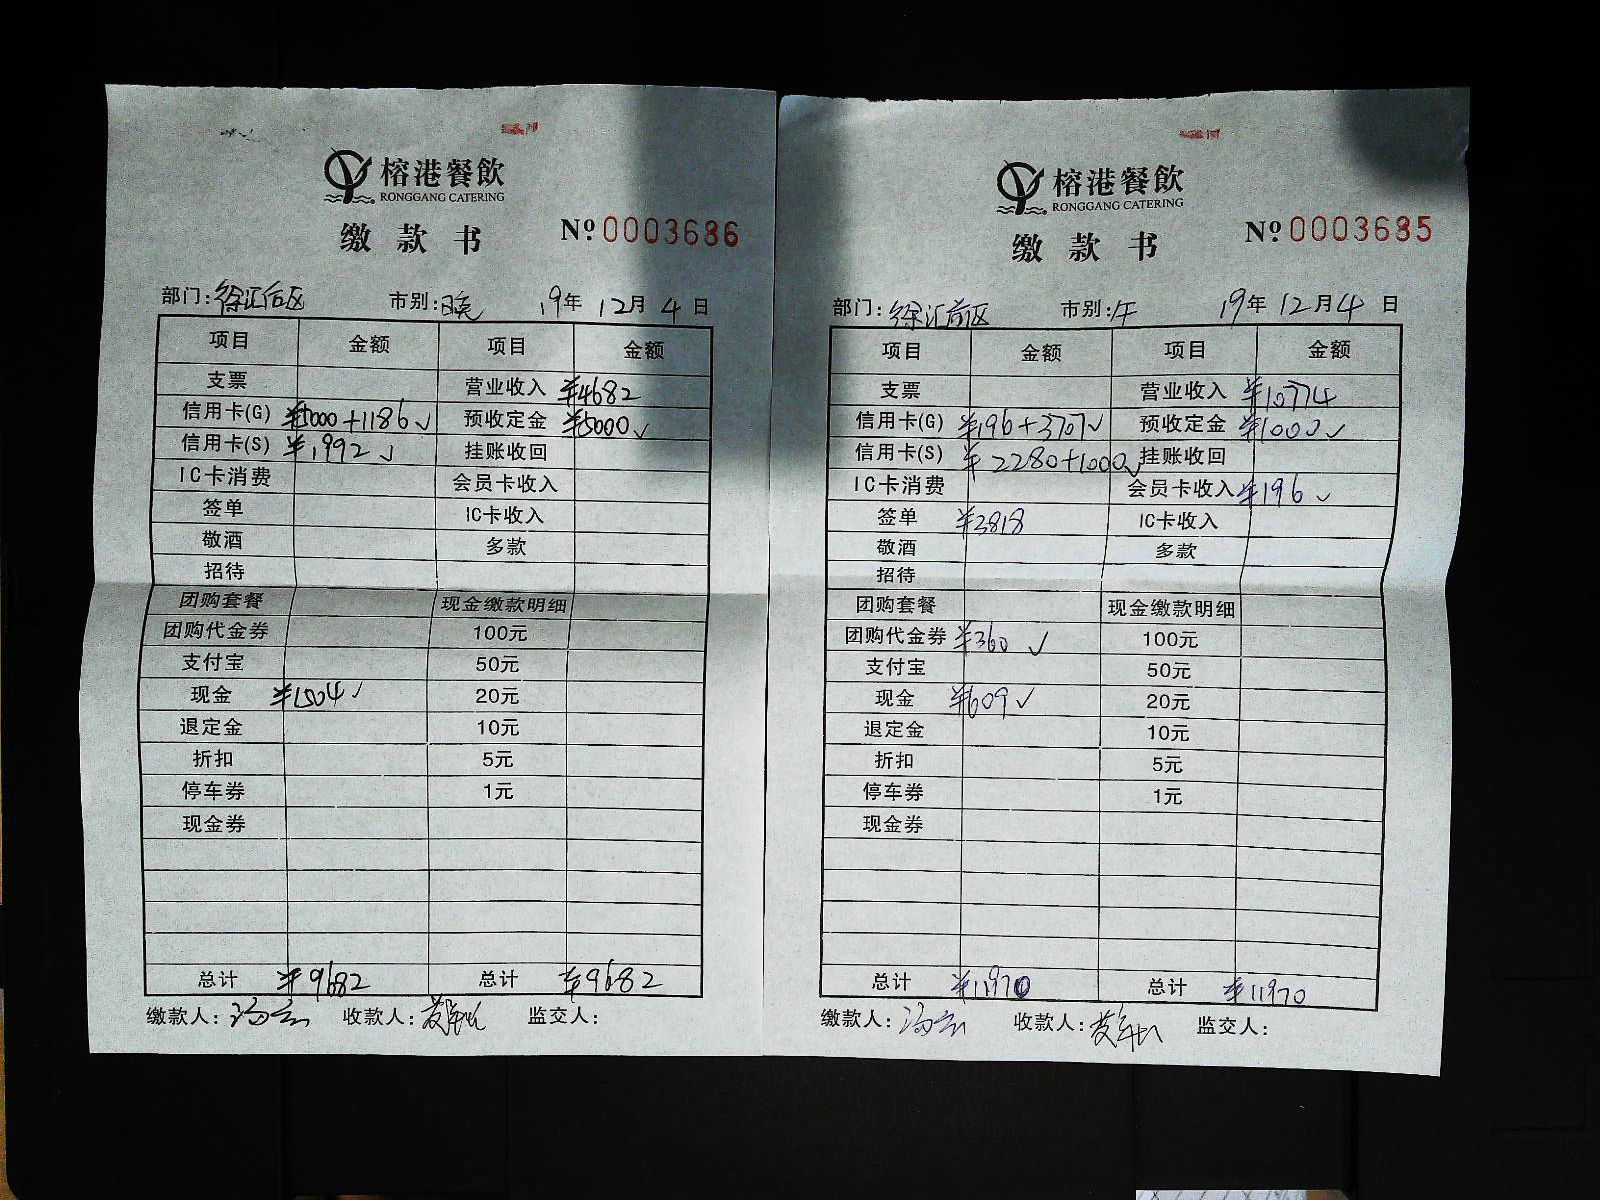 榕港餐飲
RONGGANG CATERING
缴款书
Nº 0003686
部门:徐汇后区 市别:晚 19年12月4日
项目 金额 项目 金额
支票 营业收入 ¥4682
信用卡(G) ¥5000+1186✓ 预收定金 ¥5000✓
信用卡(S) ¥1992✓ 挂账收回
IC卡消费 会员卡收入
签单 IC卡收入
敬酒 多款
招待
团购套餐 现金缴款明细
团购代金券 100元
支付宝 50元
现金 ¥1504✓ 20元
退定金 10元
折扣 5元
停车券 1元
现金券
总计 ¥9682 总计 ¥9682
缴款人: 收款人: 监交人:
榕港餐飲
RONGGANG CATERING
缴款书
Nº 0003685
部门:徐汇前区 市别:午 19年12月4日
项目 金额 项目 金额
支票 营业收入 ¥10774
信用卡(G) ¥196+3707✓ 预收定金 ¥1000✓
信用卡(S) ¥2280+1000✓ 挂账收回
IC卡消费 会员卡收入 ¥196✓
签单 ¥3818 IC卡收入
敬酒 多款
招待
团购套餐 现金缴款明细
团购代金券 ¥360✓ 100元
支付宝 50元
现金 ¥609✓ 20元
退定金 10元
折扣 5元
停车券 1元
现金券
总计 ¥11970 总计 ¥11970
缴款人: 收款人: 监交人: